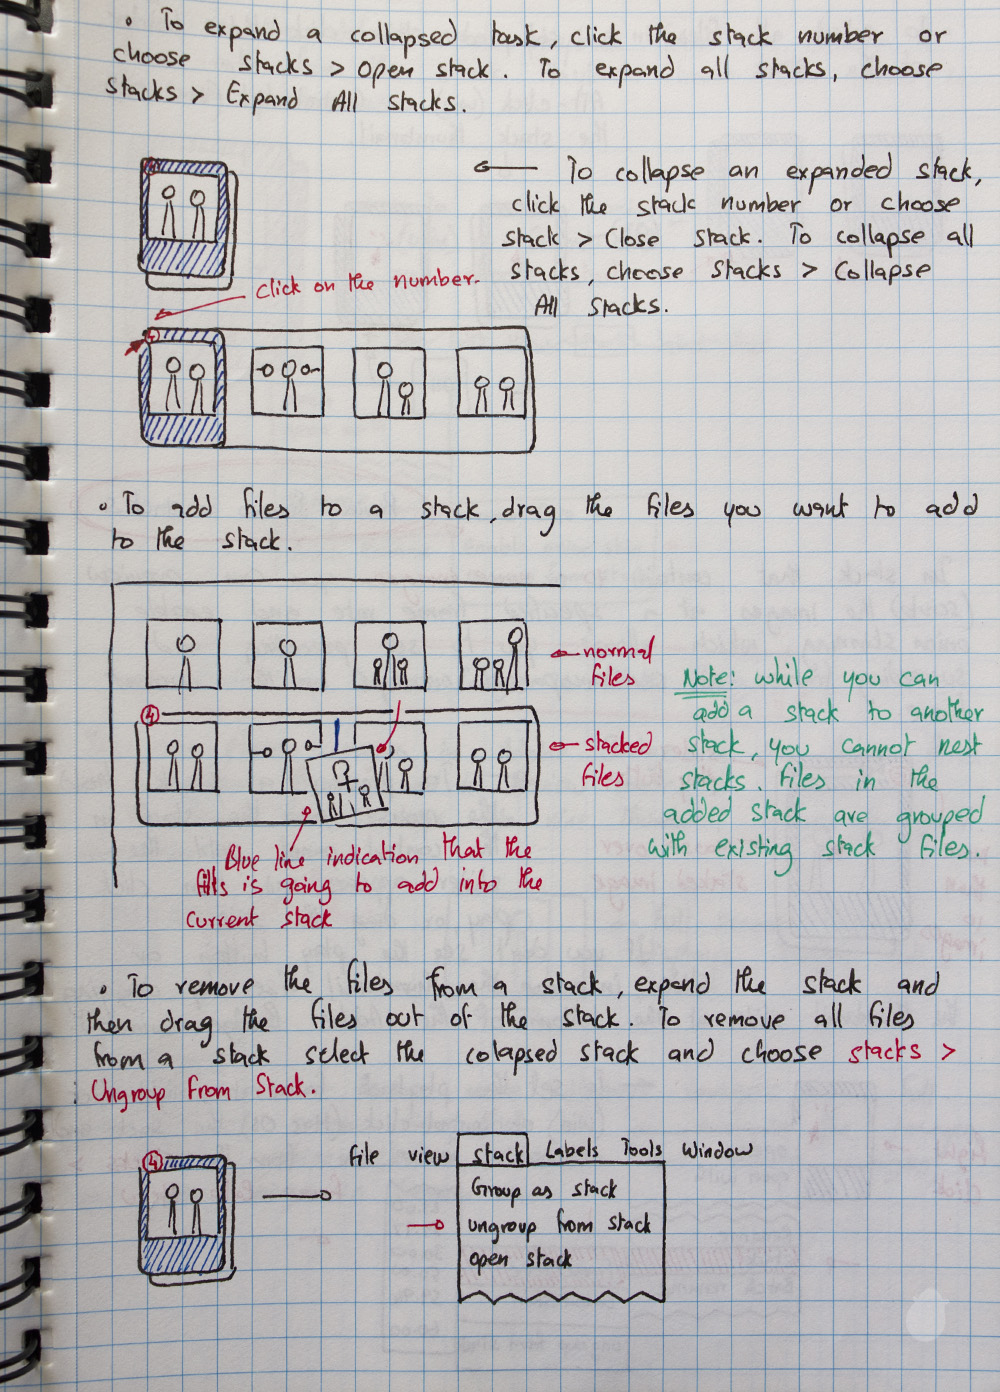 • To expand a collapsed task, click the stack number or
choose stacks > Open stack. To expand all stacks, choose
stacks > Expand All stacks.
To collapse an expanded stack,
click the stack number or choose
stack > Close stack. To collapse all
stacks, choose stacks > Collapse
All stacks.
click on the number.
4
• To add files to a stack, drag the files you want to add
to the stack.
normal
files
4
stacked
files
Note: while you can
add a stack to another
stack, you cannot nest
stacks. files in the
added stack are grouped
with existing stack files.
Blue line indication that the
is going to add into the
current stack
• To remove the files from a stack, expand the stack and
then drag the files out of the stack. To remove all files
from a stack select the colapsed stack and choose stacks >
Ungroup From Stack.
4
file view stack Labels Tools Window
Group as stack
ungroup from stack
open stack